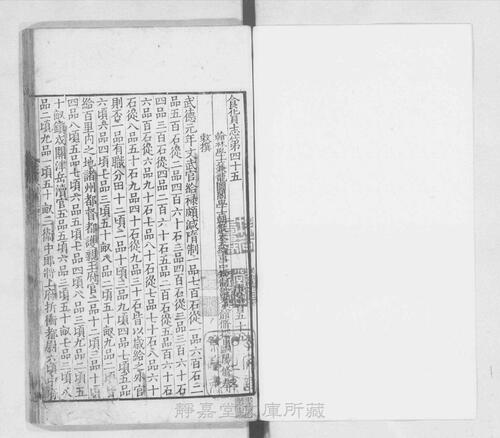 食貨志第四十五
翰林學士兼龍圖閣學士朝散大夫給事中知制誥充史館脩撰臣歐陽脩奉
敕撰
武德元年文武官給祿頗減隋制一品七百石從一品六百石二
品五百石從二品四百六十石三品四百石從三品三百六十石
四品三百石從四品二百六十石五品二百石從五品百六十石
六品百石從六品九十石七品八十石從七品七十石八品六十
石從八品五十石九品四十石從九品三十石皆以歲給之外官
則否一品有職分田十二頃二品十頃三品九頃四品七頃五品
六頃六品四頃七品三頃五十畝八品二頃五十畝九品二頃皆
給百里內之地諸州都督都護親王府官二品十二頃三品十頃
四品八頃五品七頃六品五頃七品四頃八品三頃九品二頃五
十畝鎮戍關津岳瀆官五品五頃六品三頃五十畝七品三頃八
品二頃九品一頃五十畝三衛中郎將上府折衝都尉六頃中府
靜嘉堂文庫所藏